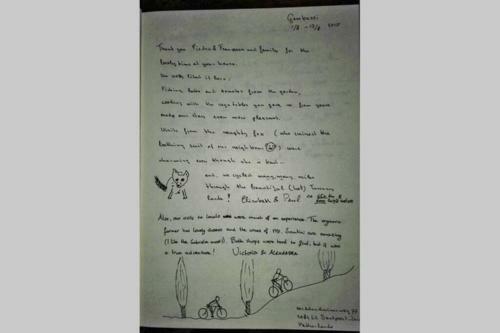 Gambassi
Thank you Piedro & Francesca and family for the
lovely time at your house.
We really liked it here.
Picking fruits and tomatoes from the garden,
cooking with the vegetables you gave us from yours
made our stay even more pleasant.
Visits from the naughty fox (who stained the
bathing suit of our neighbour) were
charming even though also a bad
and, we cycled many, many miles
through the beautiful (hot) Tuscany
lands! Elizabeth & Paul
Also, our visits to locals were much of an experience. The organic
farmer has lovely cheeses and the wines of are amazing
(I like the labels most). Both shops were hard to find, but it was
a true adventure! Victoria & Alexandra
Netherlands